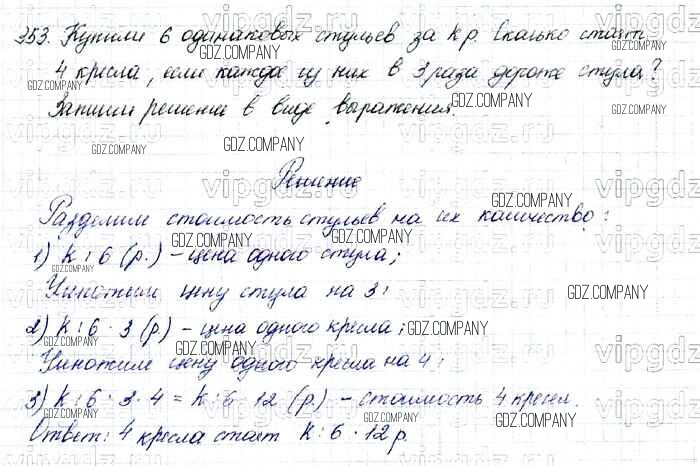 353. Купили 6 одинаковых стульев за k р. Сколько стоят
4 кресла, если каждое из них в 3 раза дороже стула?
Запиши решение в виде выражения.
Решение
Разделим стоимость стульев на их количество:
1) k : 6 (р.) – цена одного стула;
Умножим цену стула на 3:
2) k : 6 · 3 (р) – цена одного кресла;
Умножим цену одного кресла на 4:
3) k : 6 · 3 · 4 = k : 6 · 12 (р.) – стоимость 4 кресел.
Ответ: 4 кресла стоят k : 6 · 12 р.
GDZ.COMPANY
vipgdz.ru